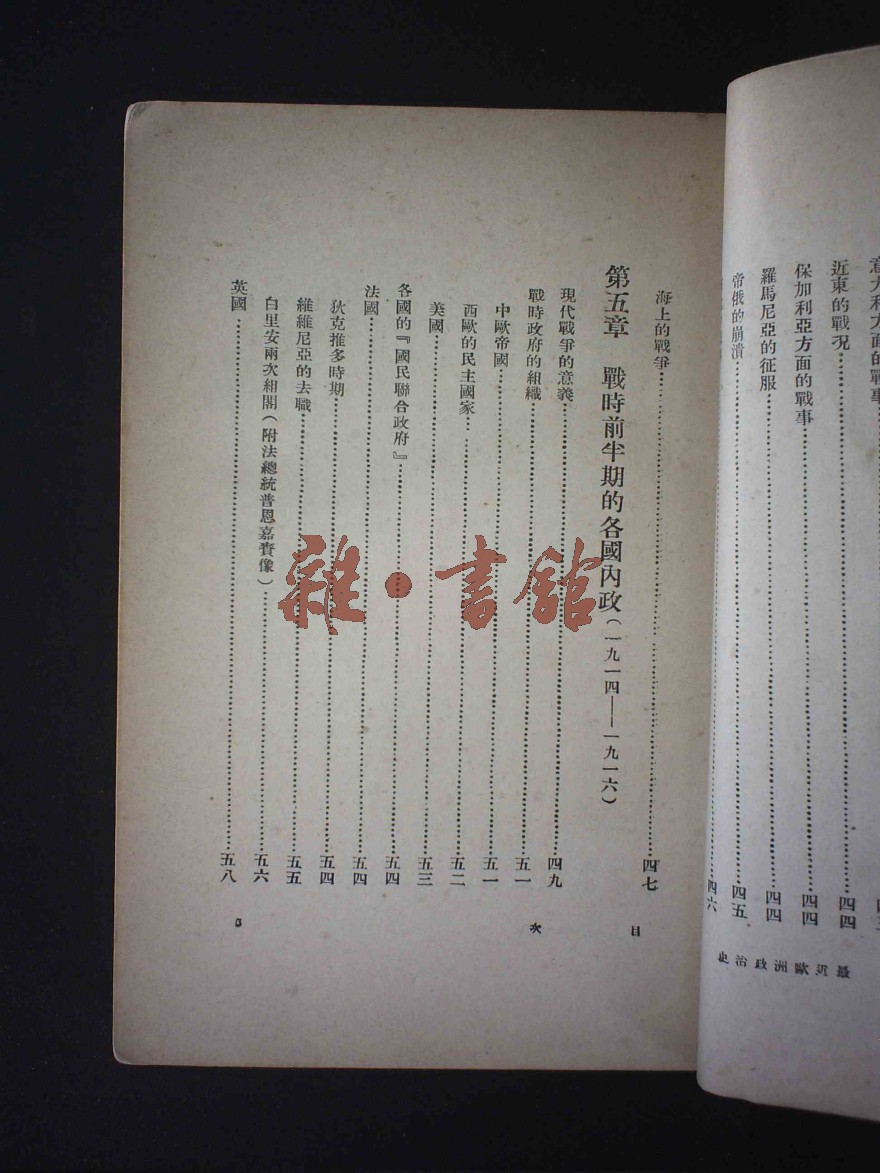 近東的戰況……四四
保加利亞方面的戰事……四四
羅馬尼亞的征服……四四
帝俄的崩潰……四五
四六
最近歐洲政治史
海上的戰爭……四七
第五章 戰時前半期的各國內政(一九一四——一九一六)
現代戰爭的意義……四九
戰時政府的組織……五一
中歐帝國……五一
西歐的民主國家……五二
美國……五三
各國的『國民聯合政府』……五四
法國……五四
狄克推多時期……五四
維維尼亞的去職……五五
白里安兩次組閣(附法總統普恩嘉賚像)……五六
英國……五八
目次
雜·書館